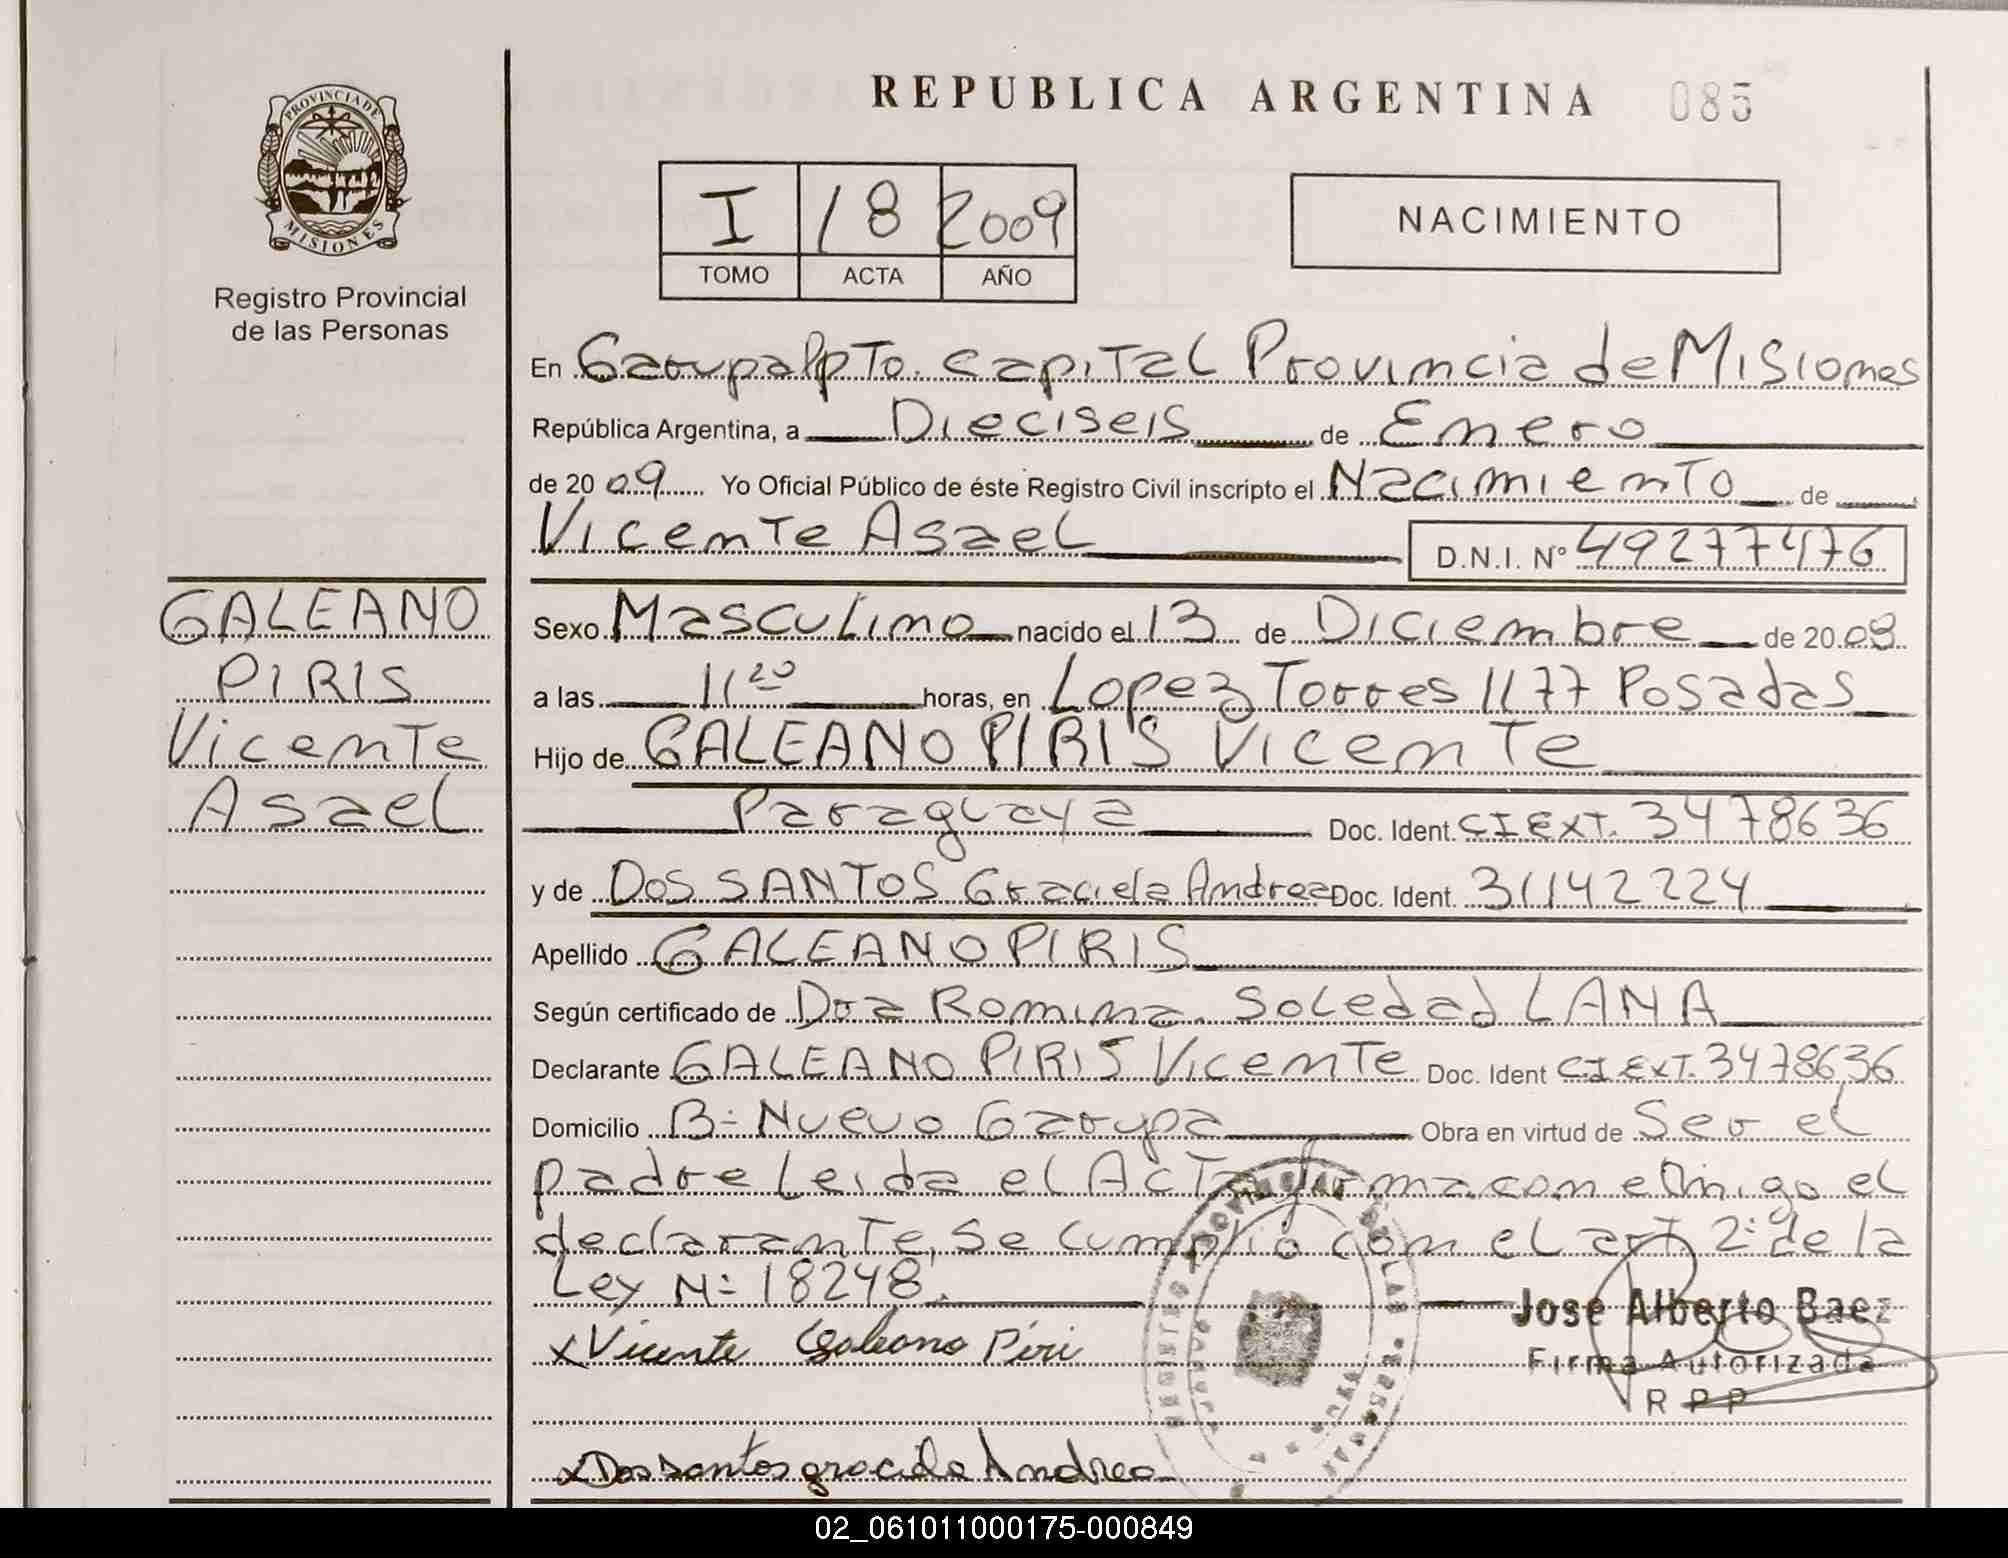 REPUBLICA ARGENTINA 085
PROVINCIA DE
MISIONES
Registro Provincial
de las Personas
I 18 2009
TOMO ACTA AÑO
NACIMIENTO
En Garupa Dpto. Capital Provincia de Misiones
República Argentina, a Dieciseis de Enero
de 20 09 Yo Oficial Público de éste Registro Civil inscripto el Nacimiento de
Vicente Asael D.N.I. Nº 49277476
GALEANO
PIRIS
Vicente
Asael
Sexo Masculino nacido el 13 de Diciembre de 20 08
a las 11 20 horas, en Lopez Torres 1177 Posadas
Hijo de GALEANO PIRIS Vicente
Paraguaya Doc. Ident. CI EXT. 3478636
y de DOS SANTOS Graciela Andrea Doc. Ident. 31142224
Apellido GALEANO PIRIS
Según certificado de Dra Romina Soledad LANA
Declarante GALEANO PIRIS Vicente Doc. Ident CI EXT. 3478636
Domicilio B= Nuevo Garupa Obra en virtud de Ser el
padre Leida el Acta firma conmigo el
declarante, se cumplio con el art. 2º de la
Ley Nº 18248.
x Vicente Galeano Piri
Jose Alberto Baez
Firma Autorizada
R P P
x Dos santos graciela Andrea
02_061011000175-000849